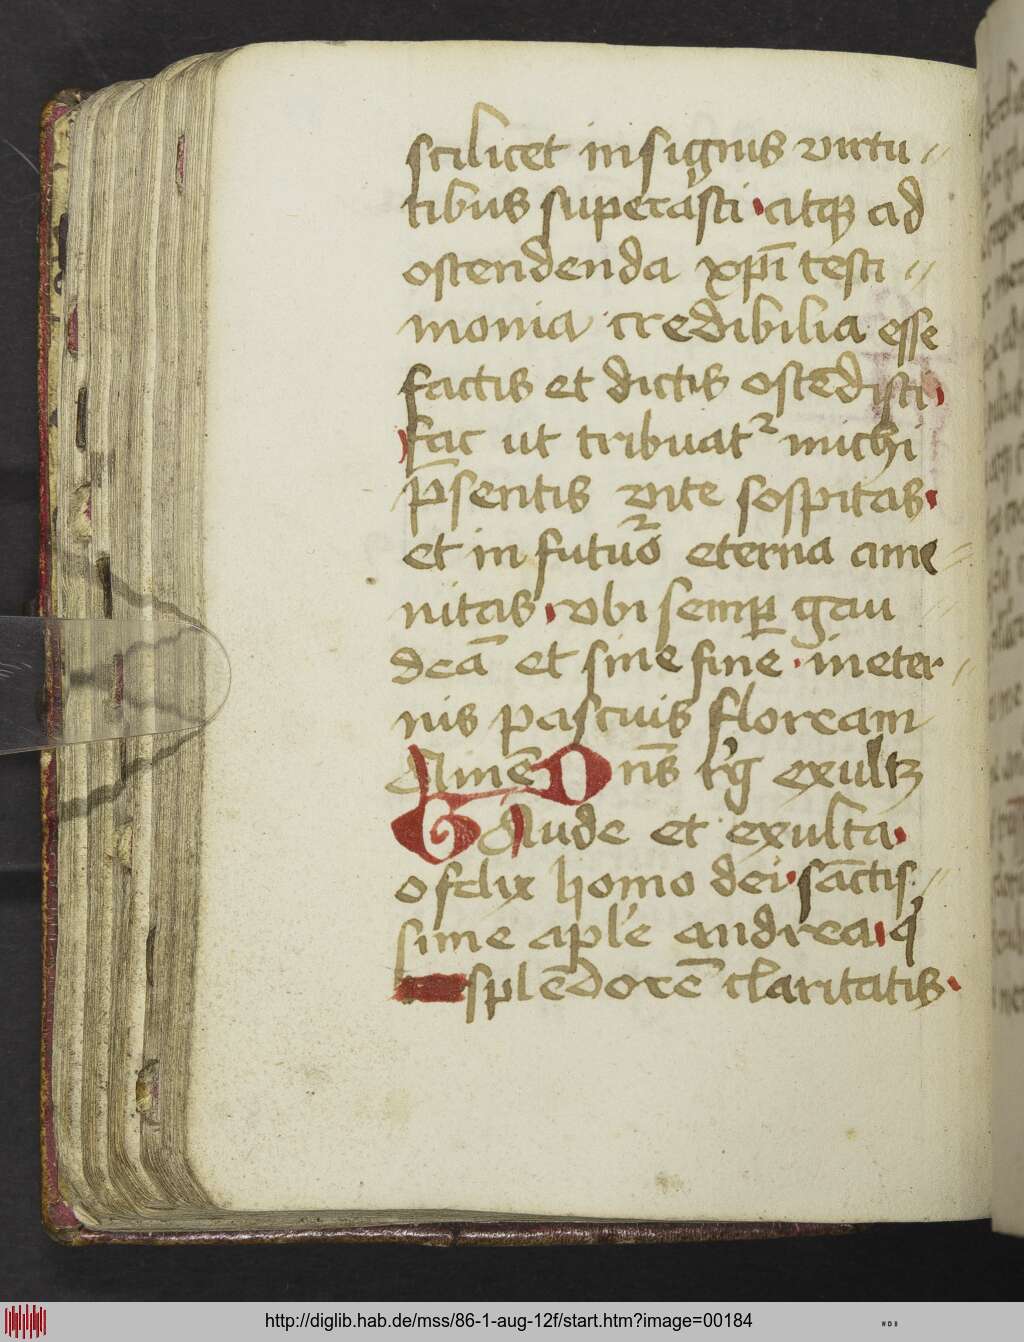 scilicet insignis virtu //
tibus superasti · atq̄ ad
ostendenda xp̄i testi //
monia credibilia esse
factis et dictis ostēdisti ·
fac ut tribuatᷣ michi
p̄sentis vite sospitas ·
et in futuᷣo eterna ame //
nitas · vbi semꝑ gau //
deā et sine fine · in eter //
nis pascuis floream
Amē Ons tꝰg exultꝫ
GAude et exulta ·
o felix homo dei · sāctis //
sime aplē andrea · q
splēdorē claritatis ·
http://diglib.hab.de/mss/86-1-aug-12f/start.htm?image=00184